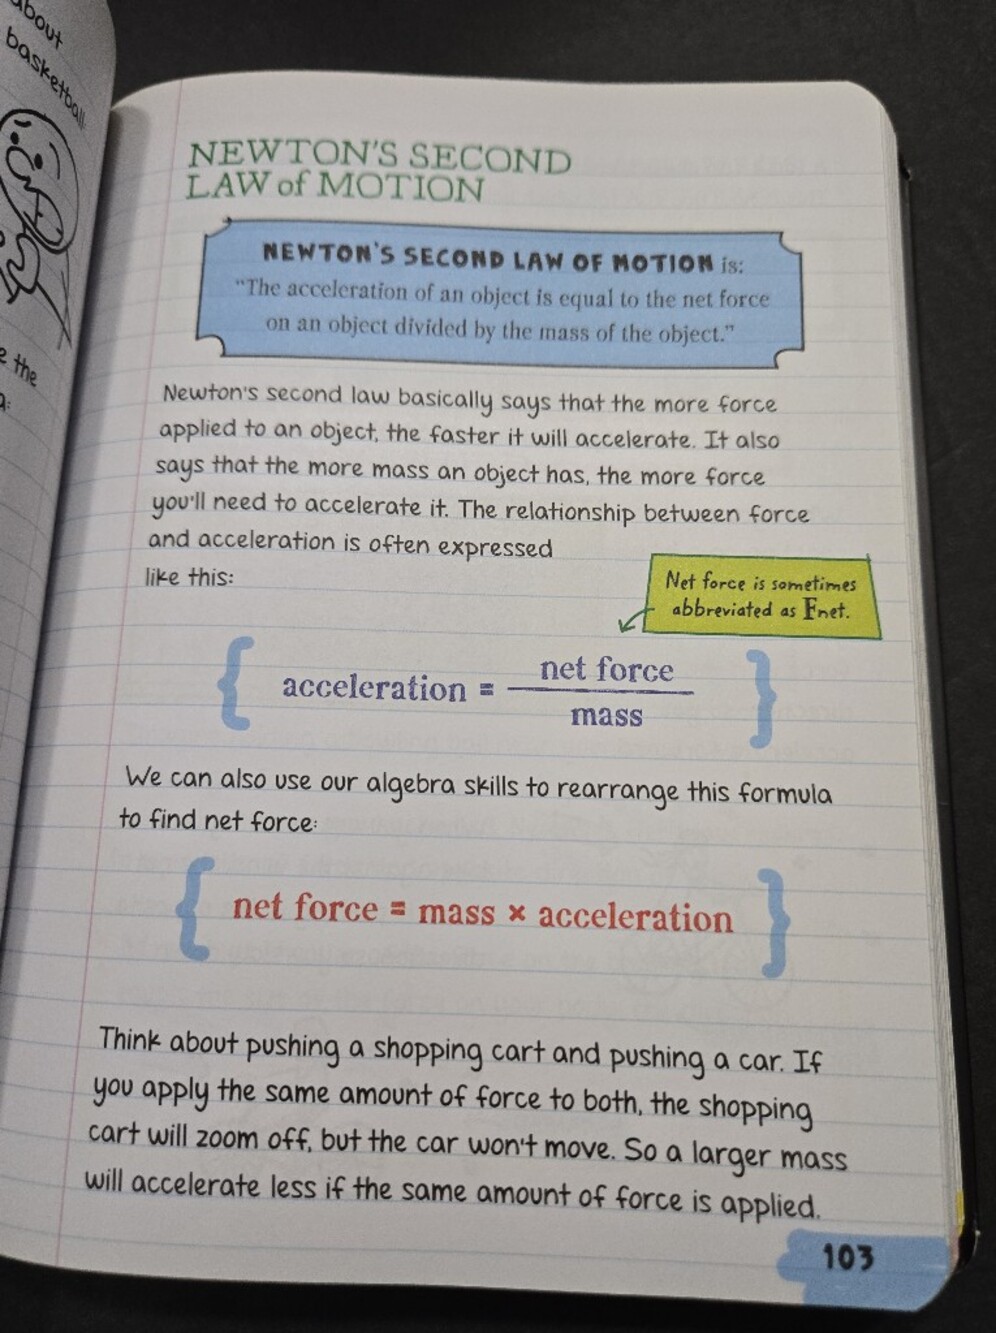 about
basketball
e the
a:
NEWTON'S SECOND
LAW of MOTION
NEWTON'S SECOND LAW OF MOTION is:
"The acceleration of an object is equal to the net force
on an object divided by the mass of the object."
Newton's second law basically says that the more force
applied to an object, the faster it will accelerate. It also
says that the more mass an object has, the more force
you'll need to accelerate it. The relationship between force
and acceleration is often expressed
like this:
Net force is sometimes
abbreviated as Fnet.
{ acceleration = net force
mass }
We can also use our algebra skills to rearrange this formula
to find net force:
{ net force = mass × acceleration }
Think about pushing a shopping cart and pushing a car. If
you apply the same amount of force to both, the shopping
cart will zoom off, but the car won't move. So a larger mass
will accelerate less if the same amount of force is applied.
103